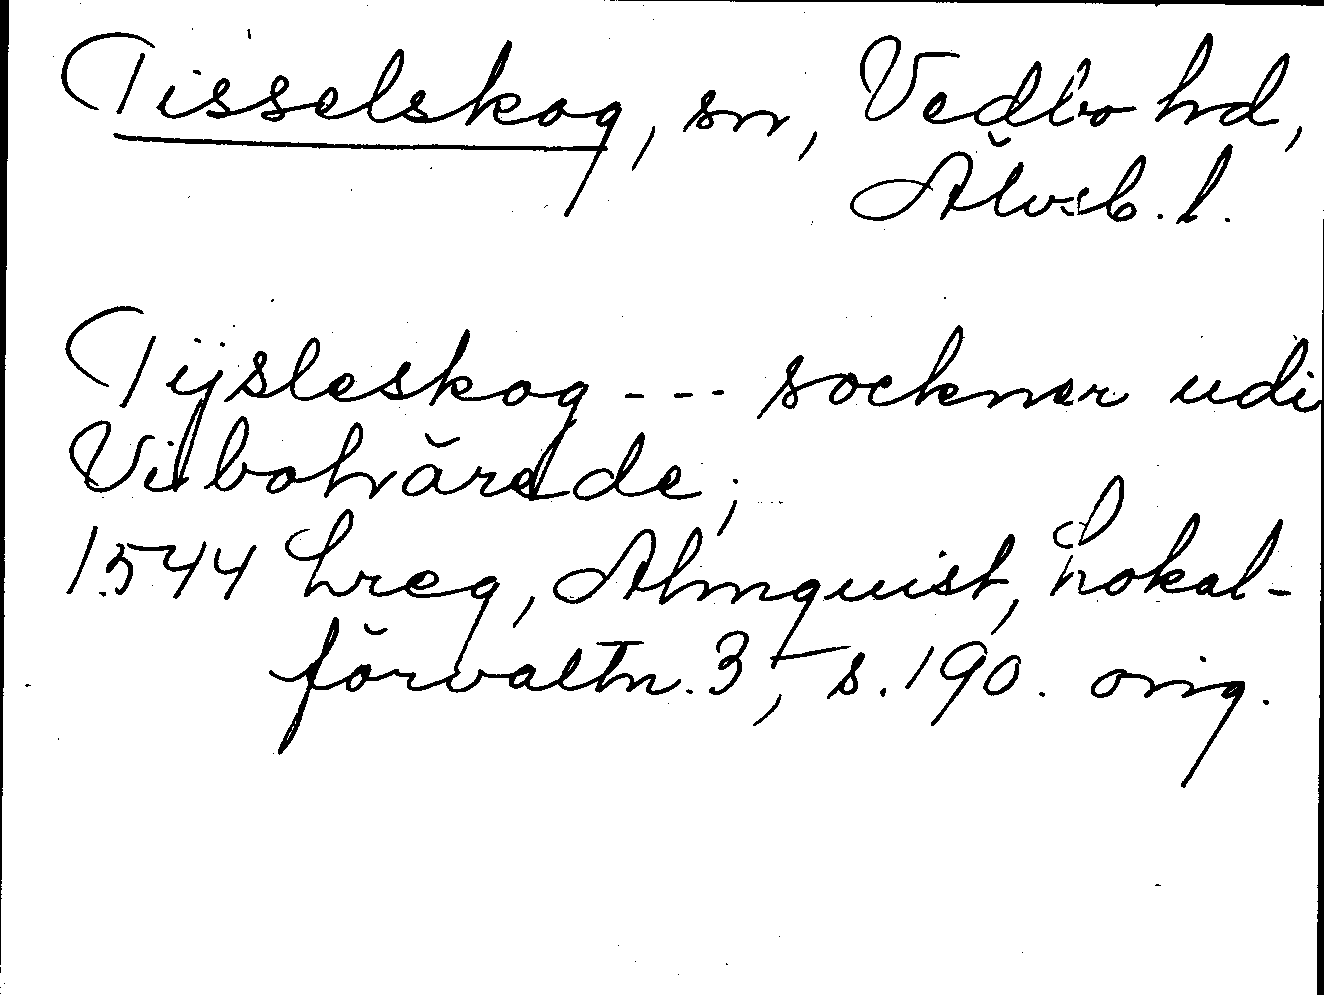 Tisselskog, sn, Vedbo hd,
Älvsb. l.
Tijsleskog --- sockner udi
Vibohärede;
1544 Lreg, Almquist, Lokal-
förvaltn. 3, s. 190. orig.